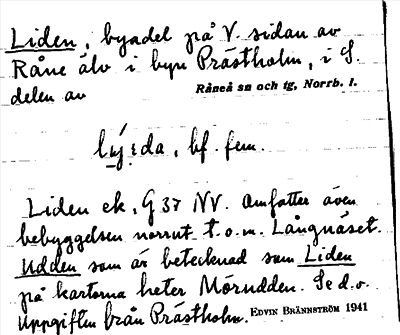 Liden, byadel på V. sidan av
Råne älv i byn Prästholm, i S.
delen av
Råneå sn och tg, Norrb. l.
bf. fem.
Liden ek, G 37 NV. Omfattar även
bebyggelsen norrut t.o.m. Långnäset.
Udden som är betecknad som Liden
på kartorna heter Mörudden. Se d.o.
Uppgiften från Prästholm. EDVIN BRÄNNSTRÖM 1941